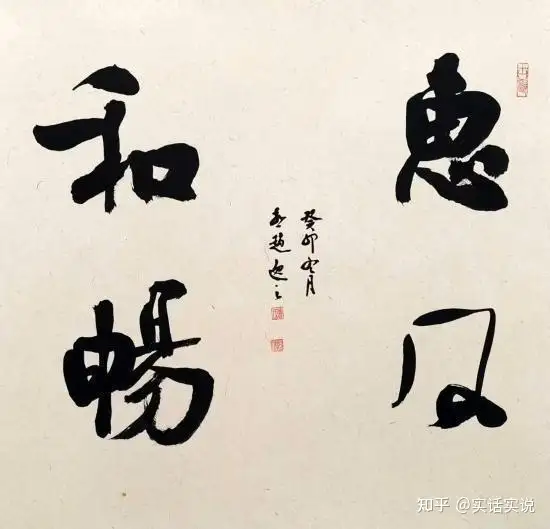 惠风
和畅
癸卯
月
知乎 @实话实说